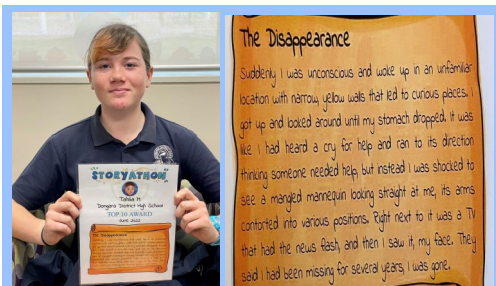 STORYATHON
Tahlia H
Dongara District High School
TOP 10 AWARD
The Disappearance
The Disappearance
Suddenly I was unconscious and woke up in an unfamiliar
location with narrow, yellow walls that led to curious places. I
got up and looked around until my stomach dropped. It was
like I had heard a cry for help and ran to its direction
thinking someone needed help, but instead I was shocked to
see a mangled mannequin looking straight at me, its arms
contorted into various positions. Right next to it was a TV
that had the news flash, and then I saw it, my face. They
said I had been missing for several years, I was gone.